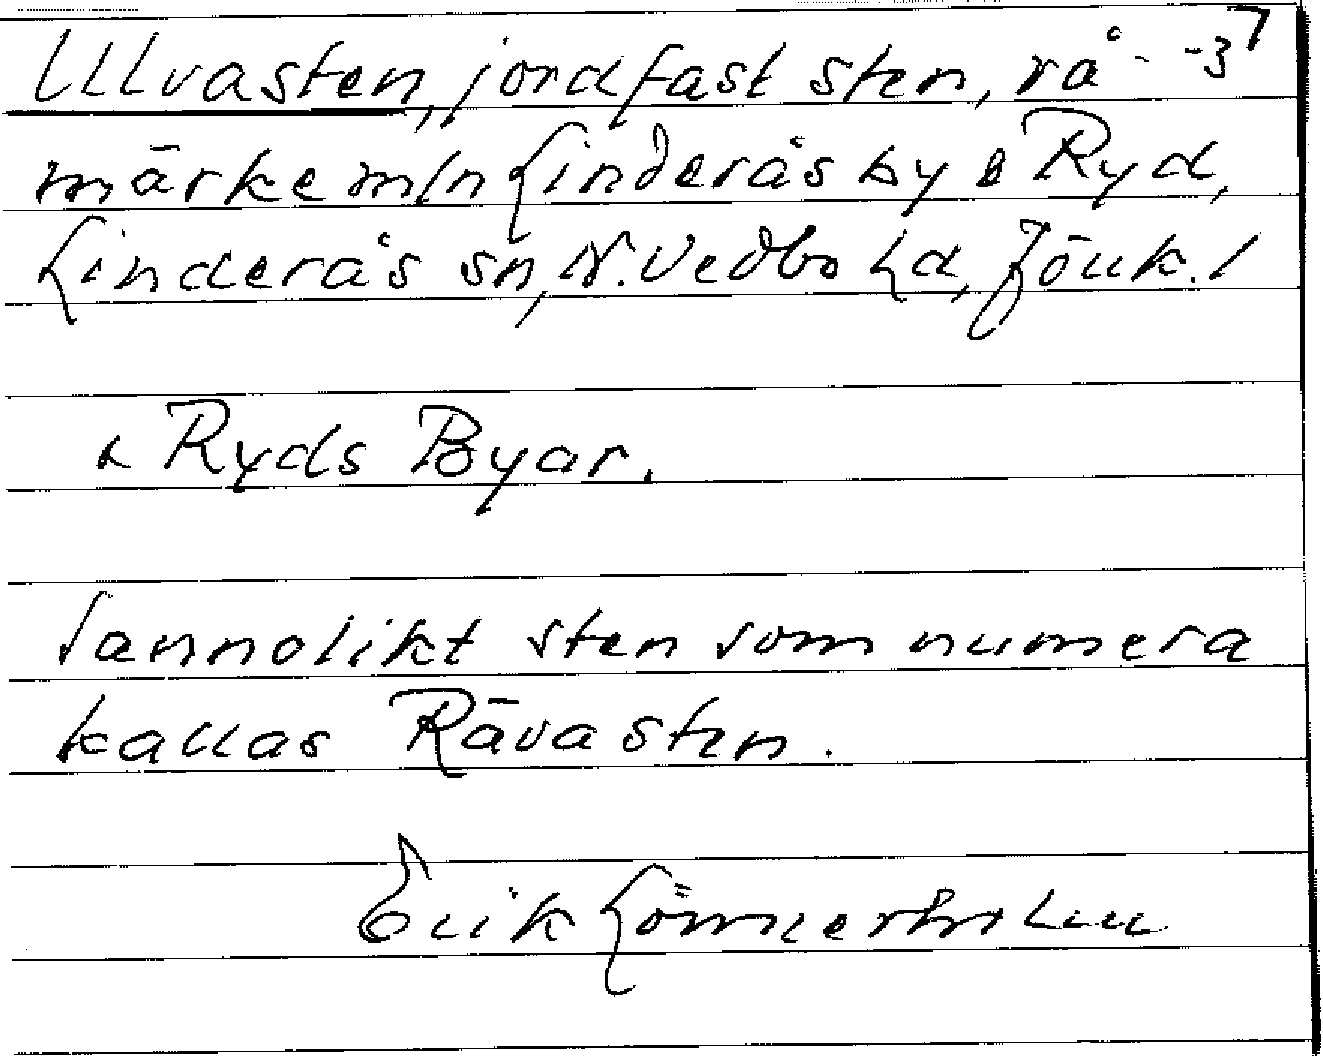 Ulvasten, jordfast sten, rå- -37
märke m/n Linderås by & Ryd,
Linderås sn, N. Vedbo hd, Jönk. l
& Ryds Byar.
Sannolikt sten som numera
kallas Rävasten.
Erik Lönnerholm